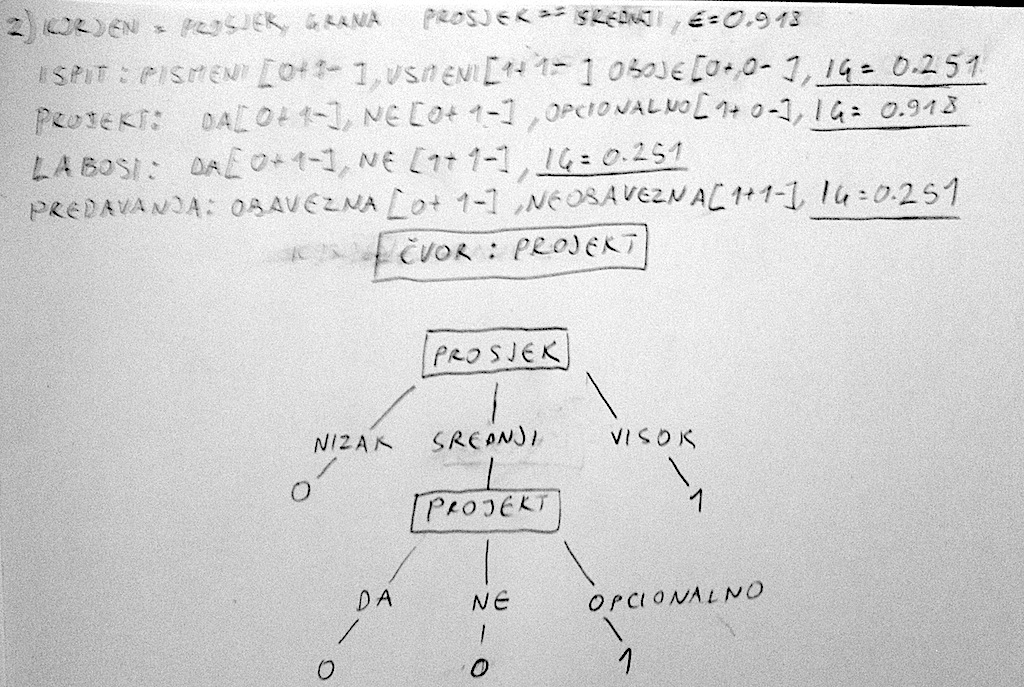 2) KORJEN = PROSJEK, GRANA PROSJEK == SREDNJI, E=0.918
ISPIT : PISMENI [0+1-], USMENI [1+1-] OBOJE [0+,0-], IG = 0.251
PROJEKT: DA[0+1-], NE[0+ 1-], OPCIONALNO[1+0-], IG= 0.918
LABOSI: DA[0+1-], NE [1+1-], IG=0.251
PREDAVANJA: OBAVEZNA [0+ 1-], NEOBAVEZNA[1+1-], IG=0.251
ČVOR : PROJEKT
PROSJEK
NIZAK SREDNJI VISOK
0 1
PROJEKT
DA NE OPCIONALNO
0 0 1